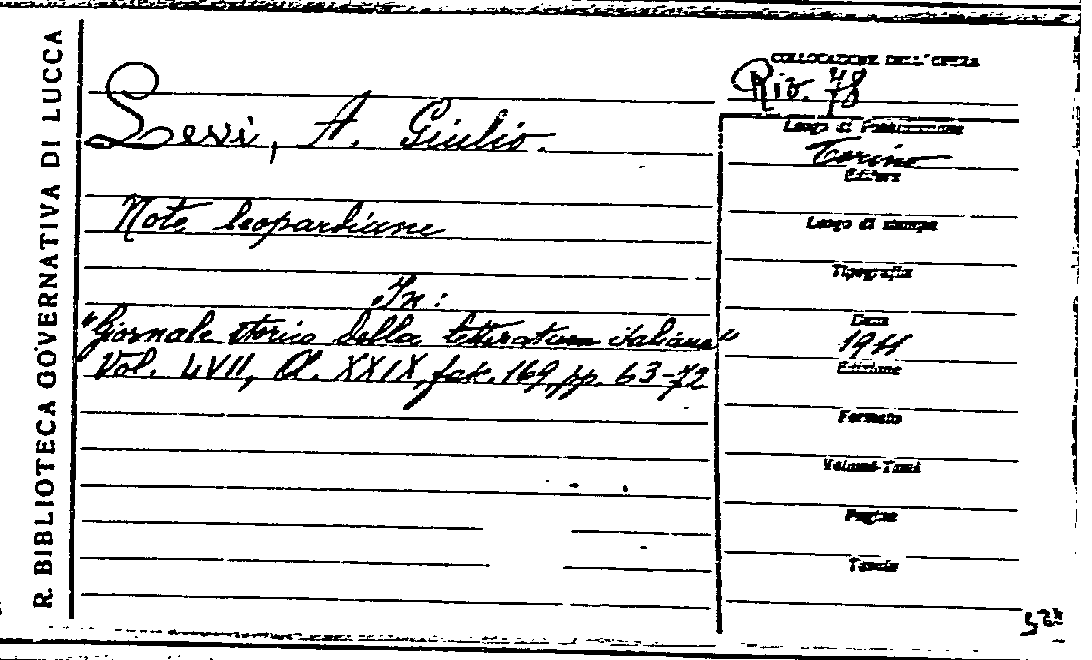 R. BIBLIOTECA GOVERNATIVA DI LUCCA
COLLOCAZIONE DELL'OPERA
Riv. 78
Levi, A. Giulio.
Note leopardiane
In:
"Giornale storico della letteratura italiana"
Vol. LVII, A. XXIX, fasc. 169, pp. 63-72
Luogo di Pubblicazione
Torino
Editore
Luogo di stampa
Tipografia
Data
1911
Edizione
Formato
Volumi-Tomi
Pagine
Tavole